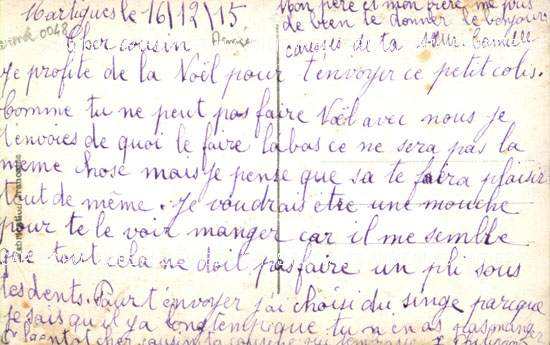 Martigues le 16/12/15
Mon père et mon frère me pris
de bien te donner le bonjour
caresses de ta sœur. Camille
Cher cousin
Je profite de la Noël pour t'envoyer ce petit colis.
Comme tu ne peut pas faire Noël avec nous je
t'envoies de quoi le faire labas ce ne sera pas la
meme chose mais je pense que sa te faira plaisir
tout de même. Je voudrais être une mouche
pour te le voir manger car il me semble
que tout cela ne doit pas faire un pli sous
tes dents. Pour t'envoyer j'ai choisi du singe parceque
je sais qu'il y a longtemps que tu n'en as pas manger
cher cousin ta cousine qui